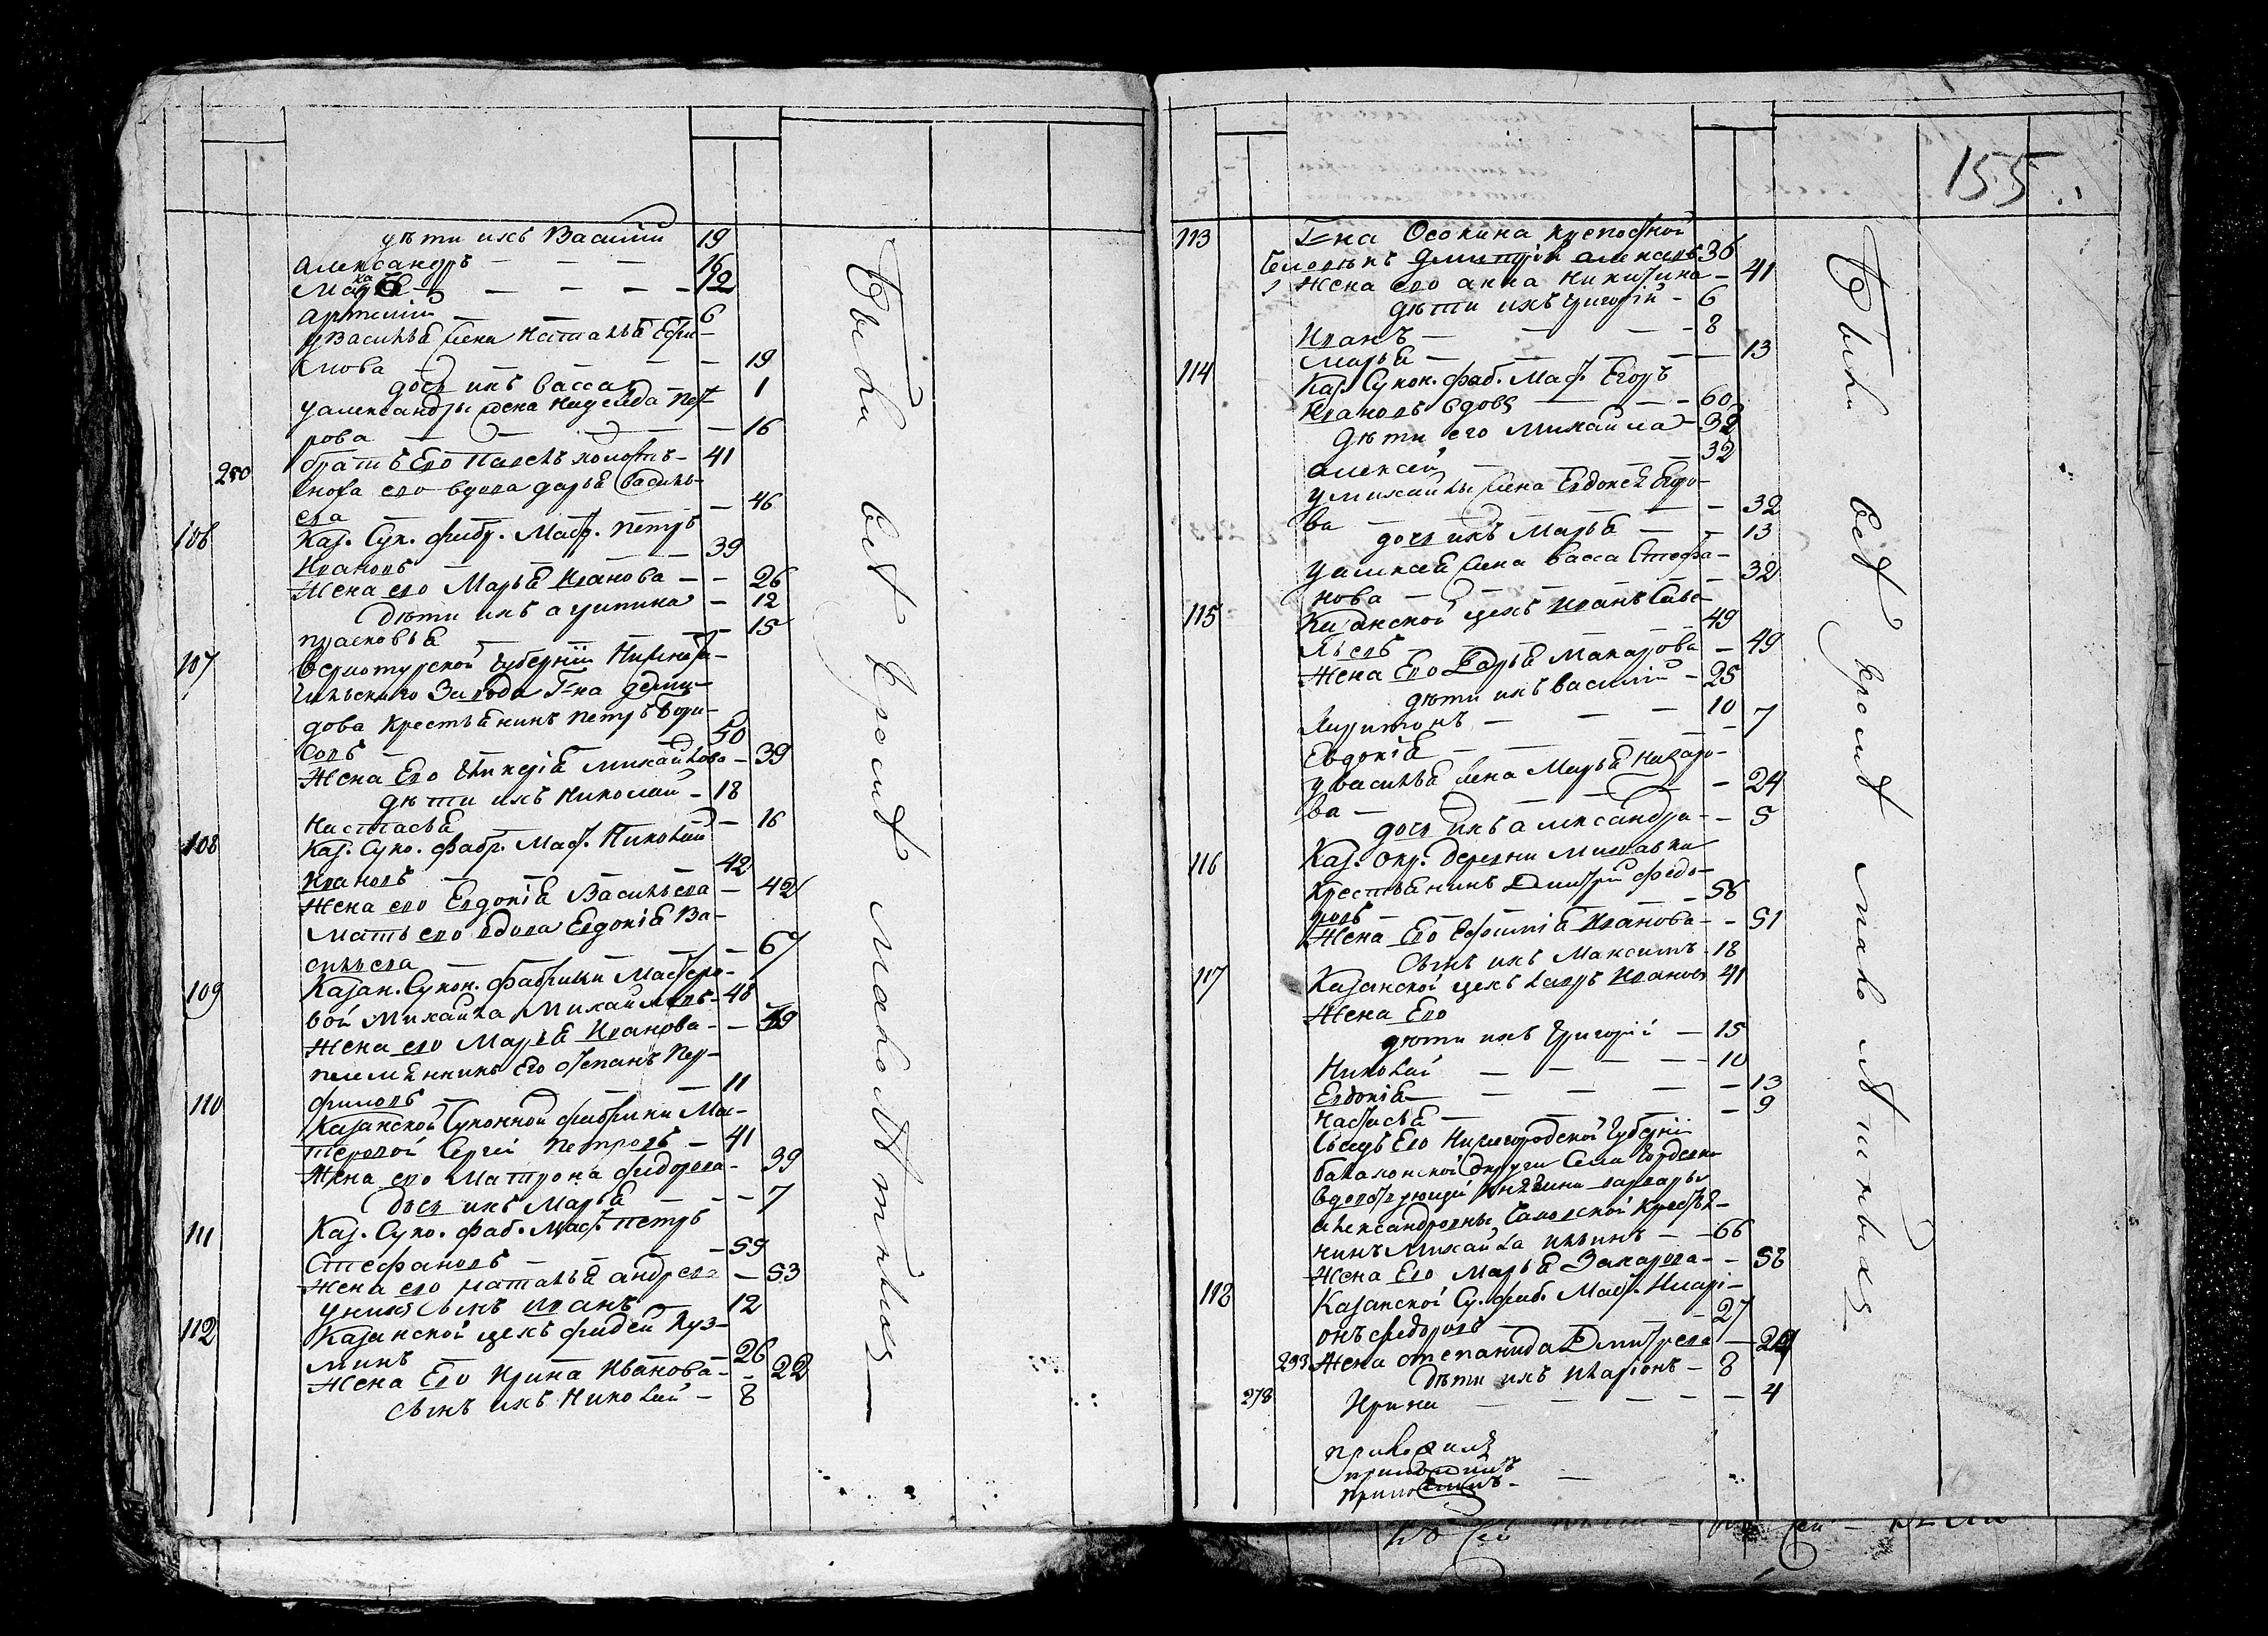 дѣти ихъ Василій 19
Александръ — — — 16
— — — — 12
Артемій — — — 6
у Василья жена Наталья Ефи-
мова — — — — 19
дочь ихъ Васса — 1
у Александры жена Надежда Пет-
рова — — — — 16
250 братъ Его Павелъ — 41
его вдова Дарья Василь-
ева — — — 46
106 Каз. Сук. фабр. Маст. Петръ
Ивановъ — — — 39
Жена его Марья Иванова — — 26
Дѣти ихъ Агрипина — 12
Прасковья — — — 15
107 Верхотурской Губерніи Нижнета-
гильскаго Завода Г=на Деми-
дова Крестьянинъ Петръ Бори-
совъ — — — 50
Жена Его Гликерія Михайлова — 39
дѣти ихъ Николай — 18
Настасья — — — 16
108 Каз. Суко. Фабр. Маст. Николай
Ивановъ — — — 42
Жена его Евдокія Васильева — 42
Мать его вдова Евдокія Ва-
сильева — — — 67
109 Казан. Сукон. Фабрики Мастеро-
вой Михайла Михайловъ — 48
Жена его Марья Иванова — — 39
племянникъ Его Степанъ Пер-
филовъ — — — 11
110 Казанской Суконной фабрики Мас-
теровой Сергій Петровъ — 41
Жена его Матрона Федорова — 39
Дочь ихъ Марья — — 7
111 Каз. Суко. Фаб. Маст. Петръ
Стефановъ — — 59
Жена его Наталья Андреева — 53
у нихъ сынъ Иванъ — 12
112 Казанской цехъ Фадей Куз-
минъ — — 26
Жена Его Ирина Иванова — — 22
сынъ ихъ Николай — 8
Были всѣ кромѣ малолѣтныхъ
155
113 Г=на Осокина крепостной
Человѣкъ Димитрій Алексѣевъ 36
Жена его Анна Никитина — 41
дѣти ихъ Григорій — 6
Иванъ — — — 8
Марья — — — — 13
114 Каз. Сукон. Фаб. Маст. Егоръ
Ивановъ вдовъ — — 60
Дѣти его Михайла — 32
Алексѣй — — — 32
у Михайлы жена Евдокея Егоро-
ва — — — — 32
дочь ихъ Марья — — 13
у Алексѣя жена Васса Стефа-
нова — — — — 32
115 Казанской цехъ Иванъ Саве-
льевъ — — — 49
Жена Его Дарья Макарова — 49
дѣти ихъ Василій — 25
Харитонъ — — — 10
Евдокія — — — — 7
у Василья жена Марья Назаро-
ва — — — — 24
дочь ихъ Александра — — 5
116 Каз. окр. деревни Мишавки
Крестьянинъ Дмитрій Федо-
ровъ — — — 56
Жена Его Евфимія Иванова — — 51
Сынъ ихъ Максимъ — 18
117 Казанской цехъ Карпъ Ивановъ 41
Жена Его
дѣти ихъ Григорій — 15
Николай — — — 10
Евдокія — — — — 13
Настасья — — — 9
Сосѣдъ Его Нижегородской Губерніи
Балахонской Округи Села Городца
вдовствующей Княгини Варвары
Александровны Крестья-
нинъ Михайла Ильинъ — — 66
Жена Его Марья Захарова — — 58
118 Казанской Су. фаб. Маст. Илларі-
онъ Федоровъ — — 27
293 Жена Степанида Дмитрева — 24
Дѣти ихъ Иларіонъ — 8
278 Ирина — — — — 4
Были всѣ кромѣ малолѣтныхъ